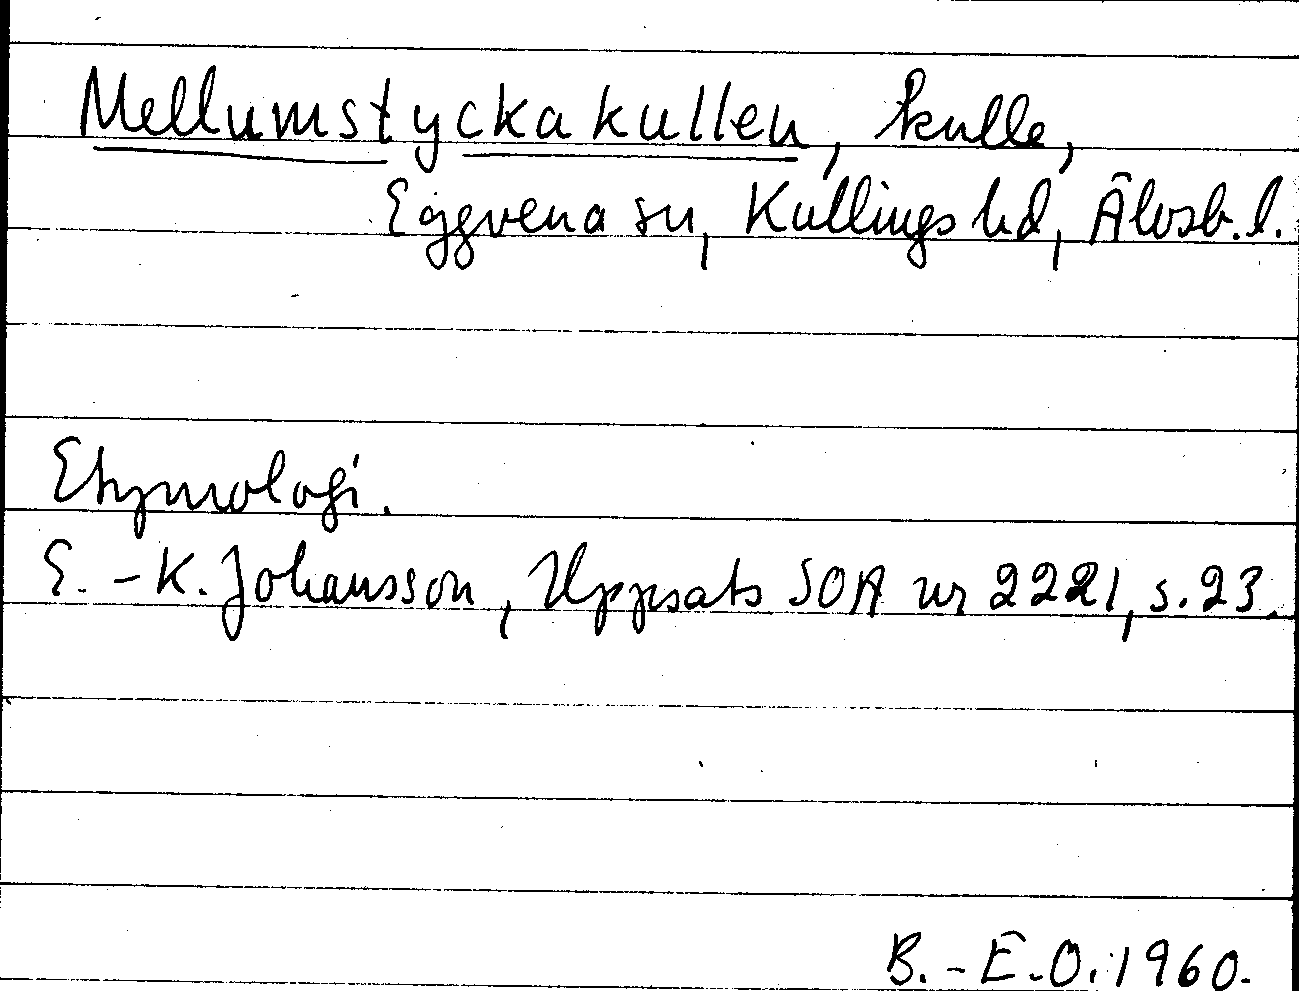 Mellumstyckakullen, kulle,
Eggvena sn, Kullings hd, Älvsb. l.
Etymologi.
E.-K. Johansson, Uppsats SOA nr 2221, s. 23.
B.-E.O. 1960.